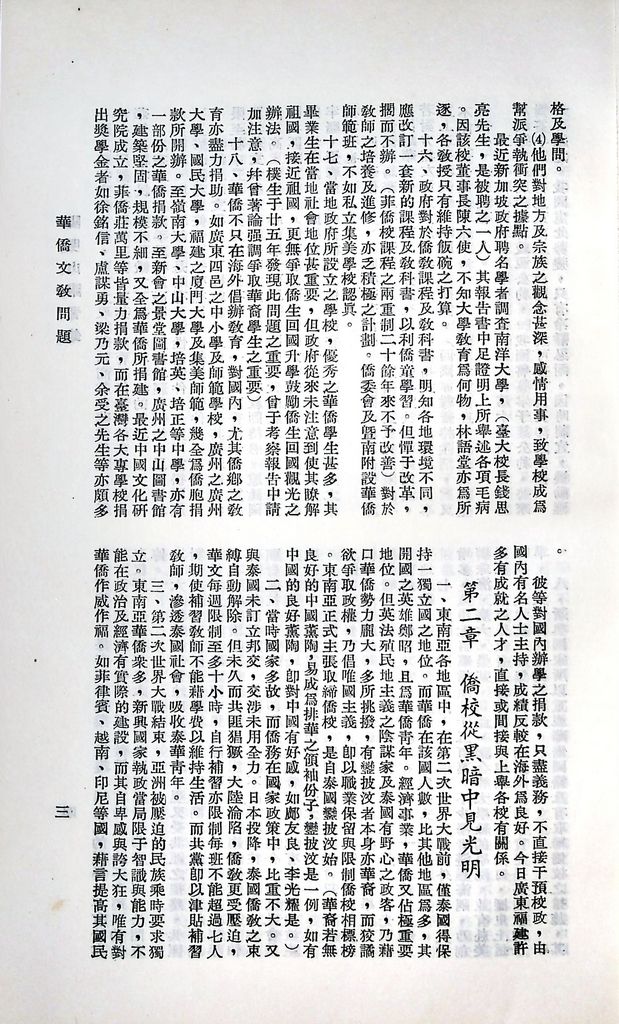 格及學問。
⑷他們對地方及宗族之觀念甚深，感情用事，致學校成為
幫派爭執衝突之據點。
最近新加坡政府聘名學者調查南洋大學，（臺大校長錢思
亮先生，是被聘之一人）其報告書中足證明上所舉述各項毛病
。因該校董事長陳六使，不知大學教育為何物，林語堂亦為所
逐，各教授只有維持飯碗之打算。
十六、政府對於僑教課程及教科書，明知各地環境不同，
應改訂一套新的課程及教科書，以利僑童學習。但憚于改革，
擱而不辦。（菲僑校課程之兩重制二十餘年來不予改善）對於
教師之培養及進修，亦乏積極之計劃。僑委會及暨南附設華僑
師範班，不如私立集美學校認真。
十七、當地政府所設立之學校，優秀之華僑學生甚多，其
畢業生在當地社會地位甚重要，但政府從來未注意到使其瞭解
祖國，接近祖國，更無爭取僑生回國升學鼓勵僑生回國觀光之
辦法。（樸生于廿五年發現此問題之重要，曾于考察報告中請
加注意，幷曾著論强調爭取華裔學生之重要）
十八、華僑不只在海外倡辦教育，對國內，尤其僑鄉之敎
育亦盡力捐助。如廣東四邑之中小學及師範學校，廣州之廣州
大學、國民大學，福建之廈門大學及集美師範，幾全為僑胞捐
款所開辦。至嶺南大學、中山大學，培英、培正等中學，亦有
一部份之華僑捐款。至新會之景堂圖書館，廣州之中山圖書館
，建築堅固，規模不細，又全為華僑所捐建。最近中國文化研
究院成立，菲僑莊萬里等皆量力捐款，而在臺灣各大專學校捐
出獎學金者如徐銘信、盧謀勇、梁乃元、余受之先生等亦頗多
華僑文敎問題
。
彼等對國內辦學之捐款，只盡義務，不直接干預校政，由
國內有名人士主持，成績反較在海外為良好。今日廣東福建許
多有成就之人才，直接或間接與上舉各校有關係。
第二章　僑校從黑暗中見光明
一、東南亞各地區中，在第二次世界大戰前，僅泰國得保
持一獨立國之地位。而華僑在該國人數，比其他地區為多，其
開國之英雄鄭昭，且為華僑青年。經濟事業，華僑又佔極重要
地位。但英法殖民地主義之陰謀家及泰國有野心之政客，乃藉
口華僑勢力龐大，多所挑撥，有鑾披汶者本身亦華裔，而狡譎
欲爭取政權，乃倡唯國主義，卽以職業保留與限制僑校相標榜
。東南亞正式主張取締僑校，是自泰國鑾披汶始。（華裔若無
良好的中國薰陶，易成為排華之領袖份子，鑾披汶是一例，如有
中國的良好薰陶，卽對中國有好感，如鄺友良、李光耀是。）
二、當時國家多故，而僑務在國家政策中，比重不大。又
與泰國未訂立邦交，交涉未用全力。日本投降，泰國僑敎之束
縛自動解除。但未久而共匪猖獗，大陸淪陷，僑敎更受壓迫，
華文每週限制至多十小時，自行補習亦限制每班不能超過七人
，期使補習敎師不能藉學費以維持生活。而共黨卽以津貼補習
敎師，滲透泰國社會，吸收泰華青年。
三、第二次世界大戰結束，亞洲被壓迫的民族乘時要求獨
立。東南亞華僑衆多，新興國家執政當局限于智識與能力，不
能在政治及經濟有實際的建設，而其自卑感與誇大狂，唯有對
華僑作威作福。如菲律賓、越南、印尼等國，藉言提高其國民
三